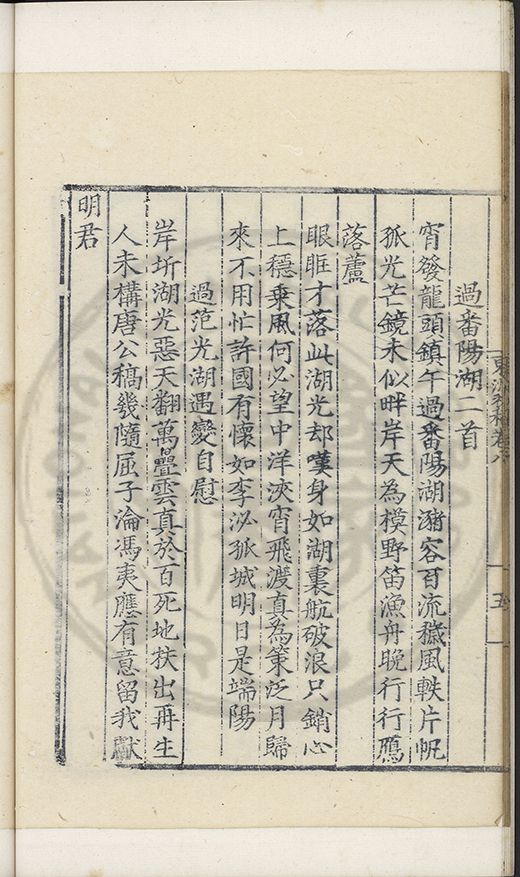 過番陽湖二首
宵發龍頭鎮午過番陽湖瀦容百流穢風軼片帆
孤光芒鏡未似畔岸天為模野笛漁舟晚行行鴈
落蘆
眼眶才落此湖光却嘆身如湖裏航破浪只銷心
上穩乗風何必望中洋浹宵飛渡真為策泛月歸
來不用忙許國有懷如李泌孤城明日是端陽
過范光湖遇變自慰
岸圻湖光惡天翻萬疊雲真於百死地扶出再生
人未構唐公稿幾隨屈子淪馮夷應有意留我獻
明君
五